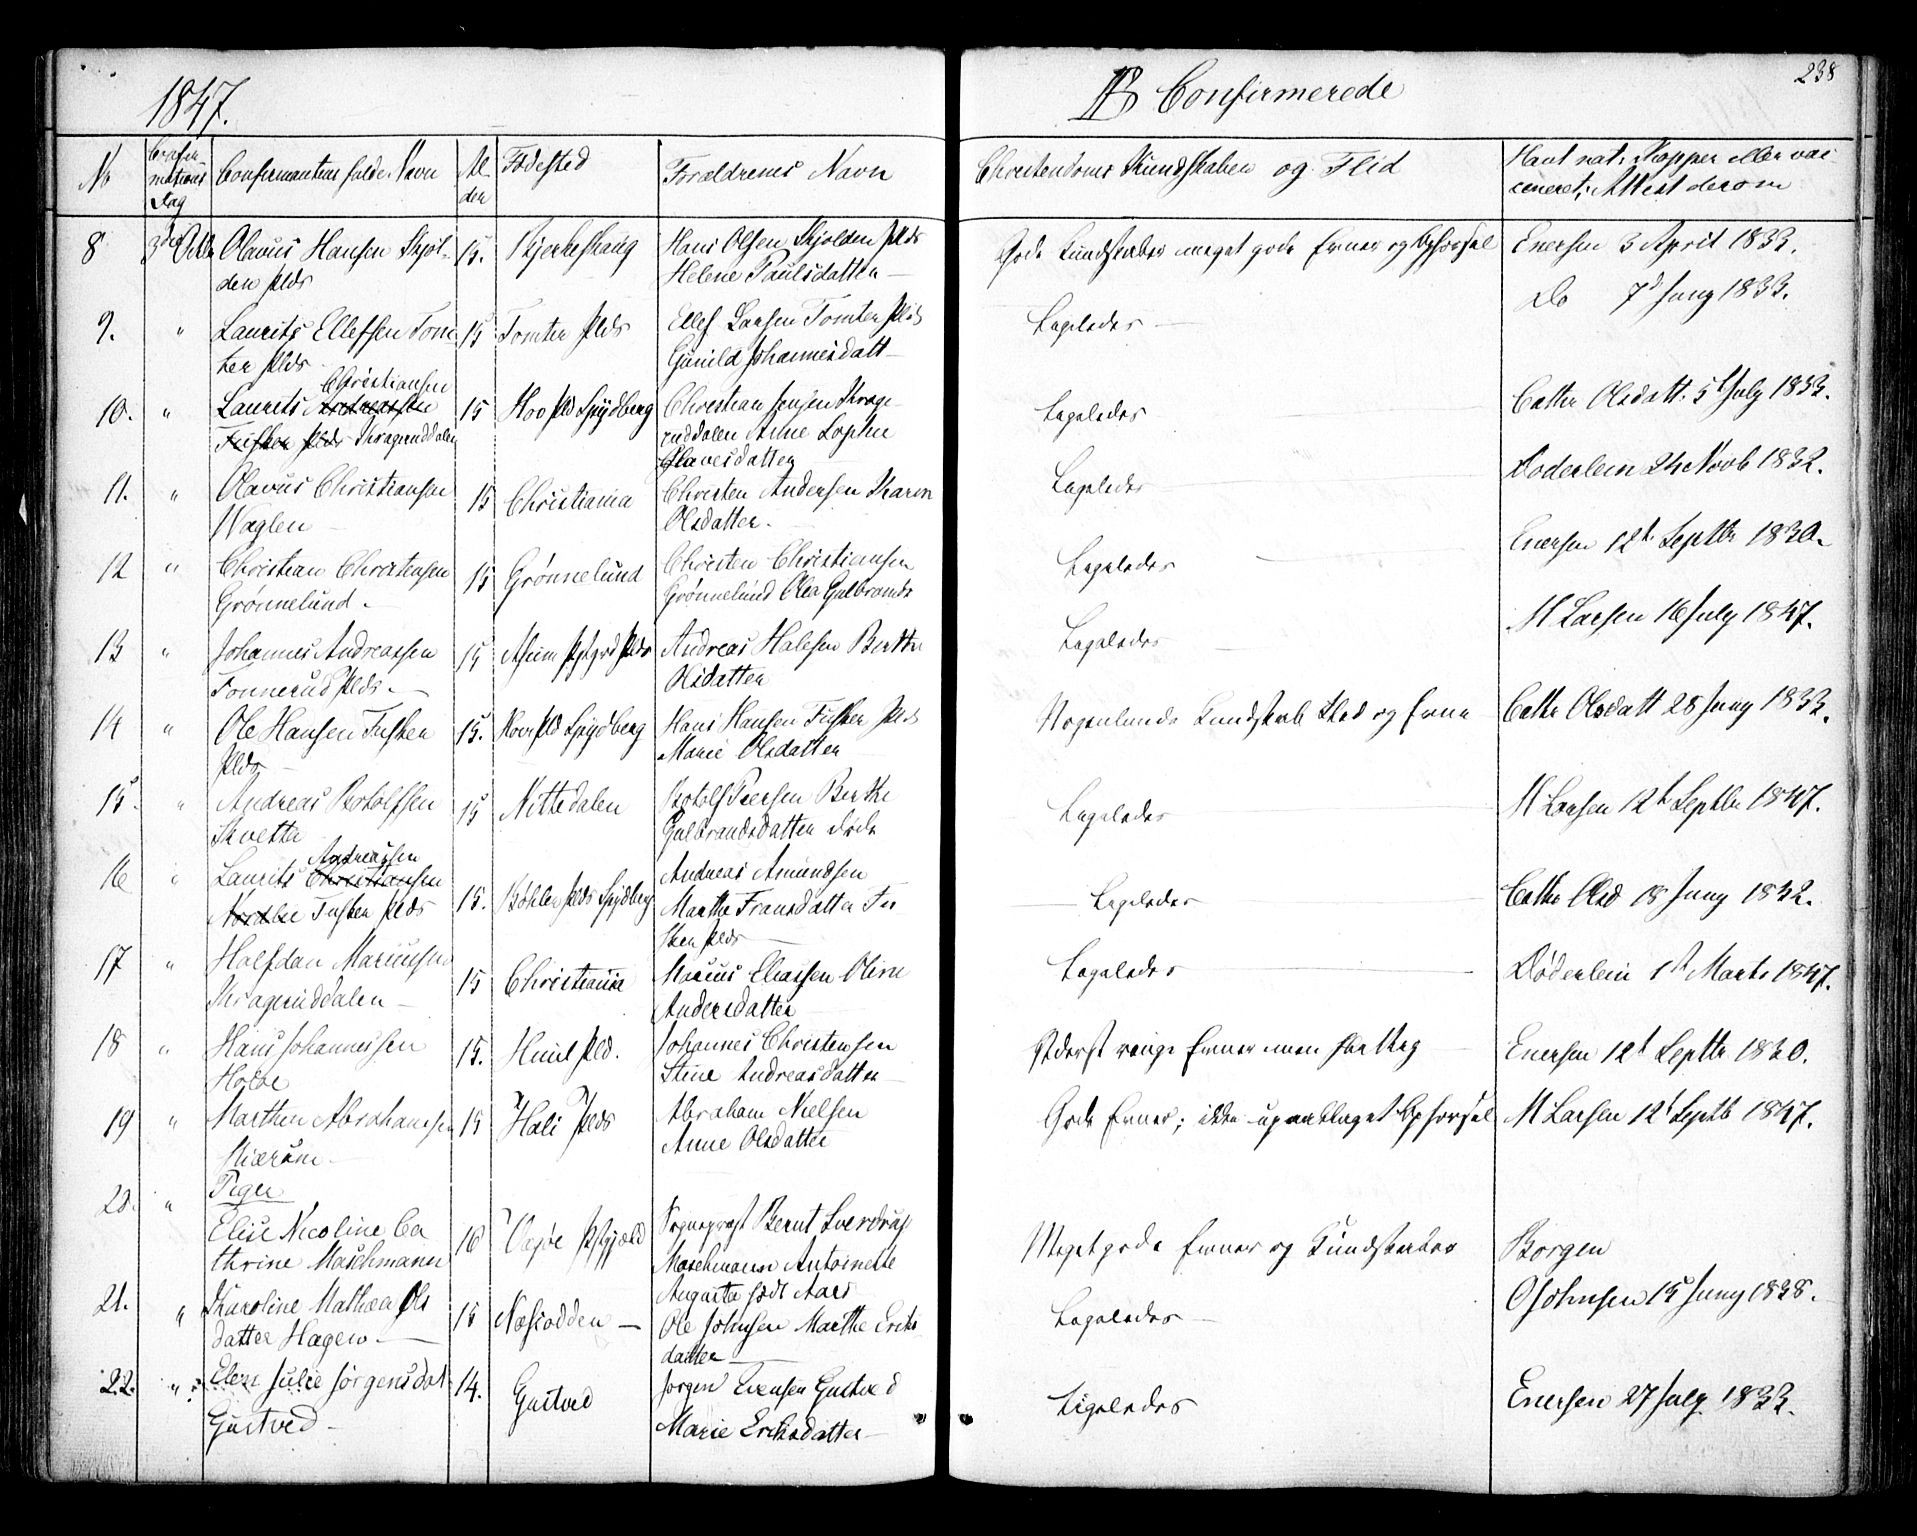 1847.
B Confirmerede
238
No
Confir-
mations
Dag
Confirmantens fulde Navn
Al-
der
Fødested
Forældrenes Navn
Christendoms Kundskaber og Flid
Havt nat: Kopper eller vac-
cineret; Attest derom
8
Olavus Hansen Skjol-
den Plds
15.
Hans Olsen Skjolden Plds
Helene Paulsdatter
Gode Kundskaber meget gode Evner og Opførsel
Enersen 3 April 1833.
9.
"
Laurits Ellefsen Tom
ter Plds
15
Tomter Plds
Ellef Larsen Tomter Plds
Gunild Johannesdatt
Ligeledes
Do 7d Juny 1833.
10.
"
Christiansen
Laurits Andreassen
Fusken Plds Kragerrddalen
15
Hoo Pld Spydberg
Christian Jensen Krage-
ruddalen Anne Sophie
Olavesdatter
Ligeledes
Cathr Olsdatt. 5t July 1833.
11.
"
Olavus Christiansen
Waglen
15
Christiania
Christen Andersen Karen
Olsdatter.
Ligeledes
Doderlein 24 Novb 1832.
12
"
Christian Christensen
Grønnelund.
15
Grønnelund
Christen Christiansen
Grønnelund Olea Gulbrands
Ligeledes
Enersen 12t Septbr 1830.
13
"
Johannes Andreassen
Tonnerud Plds.
15
Andreas Halesen Berthe
Olsdatter
Ligeledes
M Larsen 16 July 1847.
14
"
Ole Hansen Fusken
Plds
15.
Hoon Pld Spydberg
Hans Hansen Fusken Plds
Marie Olsdatter
Nogenlunde Kundskab Flid og Evne
Cathr Olsdatt 28 Juny 1833.
15.
"
Andreas Botolfsen
Skvette
15
Nittedalen
Botolf Peersen Berthe
Gulbrandsdatter døde
Ligeledes
M Larsen 12t Septbr 1847.
16
"
Andreassen
Laurits Christiansen
Nordlie Fusken Plds
15.
Bøhlen Plds Spydberg
Andreas Amundsen
Marthe Fransdatter Fu
sken Plds
Ligeledes
Cathr Olsd 18 Juny 1832.
17
"
Halfdan Mariussen
Krageruddalen
15
Christiania
Marius Eliassen Oline
Andersdatter
Ligeledes
Døderlein 1t Marts 1847.
18
"
Hans Johannessen
Holbe
15.
Huul Pld.
Johannes Christensen
Stine Andreasdatter
Yderst ringe Evner men flittig
Enersen 12t Septbr 1830.
19
"
Marthin Abrahamsen
Kiærum
15
Hali Plds
Abraham Nielsen
Anne Olsdatter
Gode Evner; ikke upaaklaget Opførsel
M Larsen 12t Septb 1847.
20.
"
Piger
Elise Nicoline Ca
thrine Maschmann
16
Sogneprest Bernt Sverdrup
Maschmann Antoinette
Augusta født Aars
Meget gode Evner og Kundskaber
Borgen
21.
"
Karoline Mathea Ols
datter Hagen
15
Næsodden
Ole Johnsen Marthe Eriks
datter
Ligeledes
O Johnsen 15 Juny 1838.
22.
"
Elen Julie Jørgensdat
Gustved
14.
Gustved
Jørgen Evensen Gustved
Marie Eriksdatter
Ligeledes
Enersen 27 July 1833.